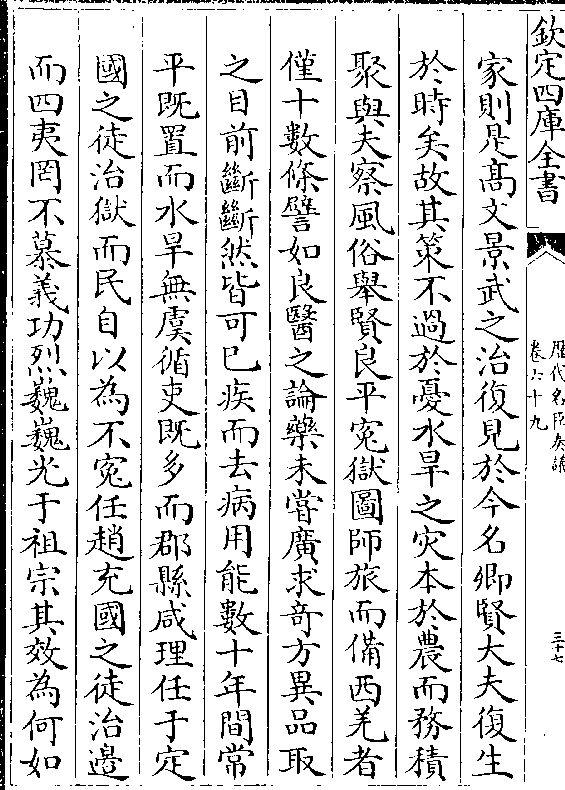 欽定四庫全書
歷代名臣奏議
卷六十九
三十七
家則是高文景武之治復見於今名卿賢大夫復生
於時矣故其策不過於憂水旱之灾本於農而務積
聚與夫察風俗舉賢良平寃獄圖師旅而備西羌者
僅十數條譬如良醫之論藥未嘗廣求竒方異品取
之目前斷斷然皆可已疾而去病用能數十年間常
平既置而水旱無虞循吏既多而郡縣咸理任于定
國之徒治獄而民自以為不寃任趙充國之徒治邉
而四夷罔不慕義功烈巍巍光于祖宗其效為何如